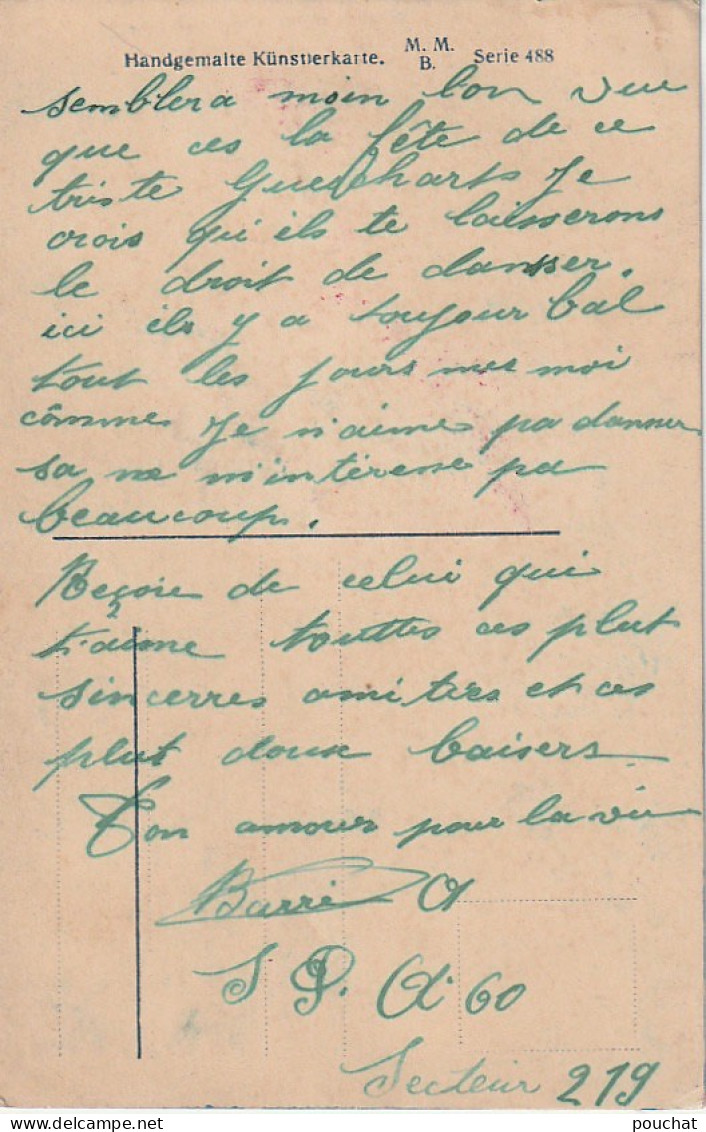 Handgemalte Künstlerkarte. M. M. B. Serie 488
semblera moin bon vue
que ces la fête de ce
triste Guescharts Je
crois qu'ils te laisserons
le droit de dansser.
ici ils y a toujour bal
tout les jours mes moi
comme Je n'aime pa danser
sa ne m'intéresse pa
beaucoup.
Reçois de celui qui
t'aime touttes ces plut
sincerres amitiés et ces
plut doux baisers
Ton amour pour la vie
Barré A
S P. A. 60
Secteur 219
pouchat